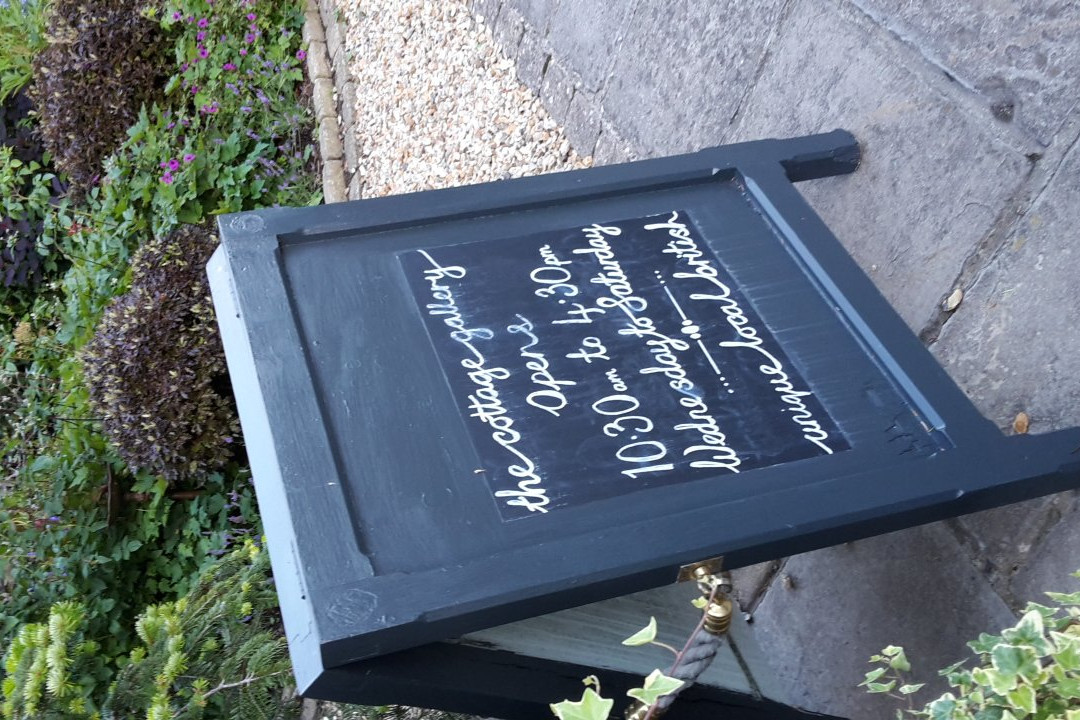 the cottage gallery
Opens
10:30am to 4:30pm
Wednesday to Saturday
unique local british